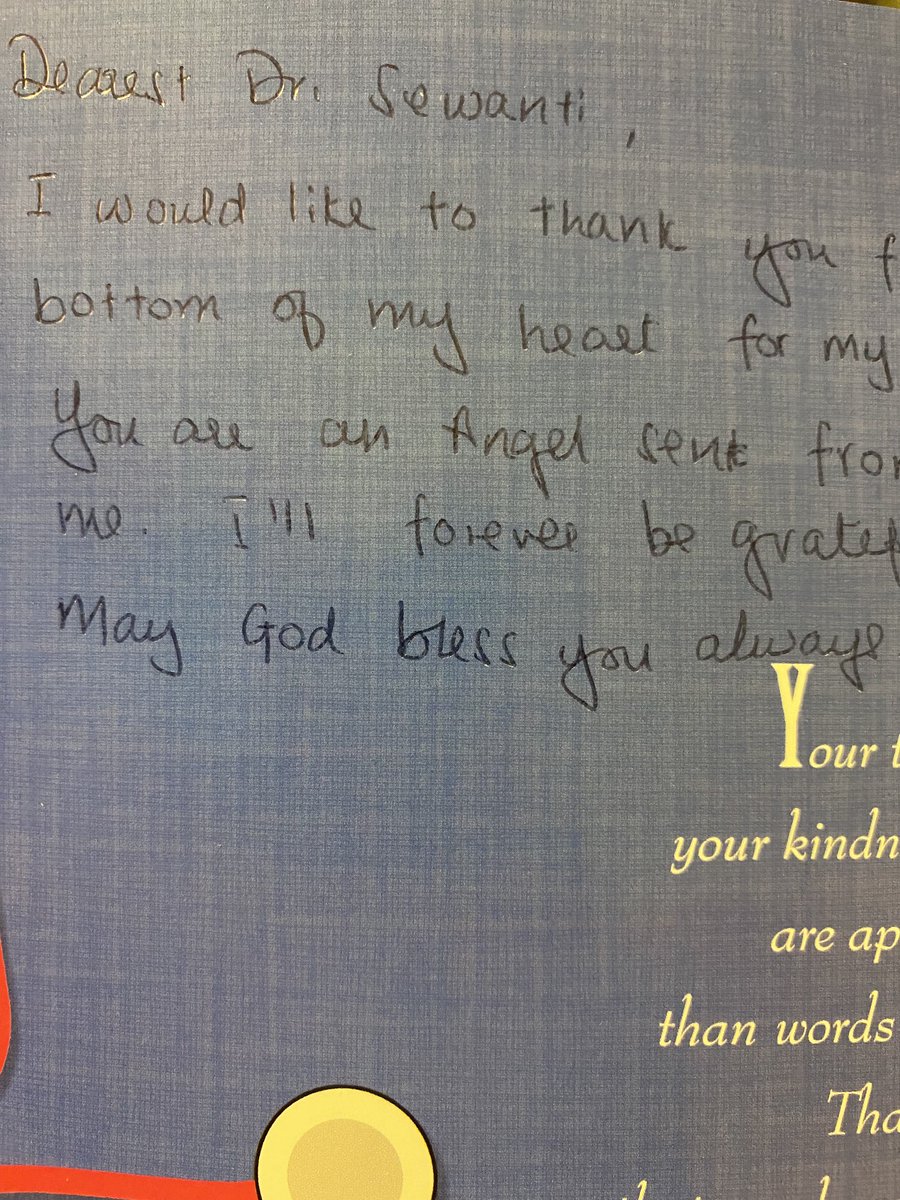 Dearest Dr. Sewanti,
I would like to thank you f
bottom of my heart for my
You are an Angel sent from
me. I'll forever be gratef
May God bless you always.
Your t
your kindn
are ap
than words
Tha